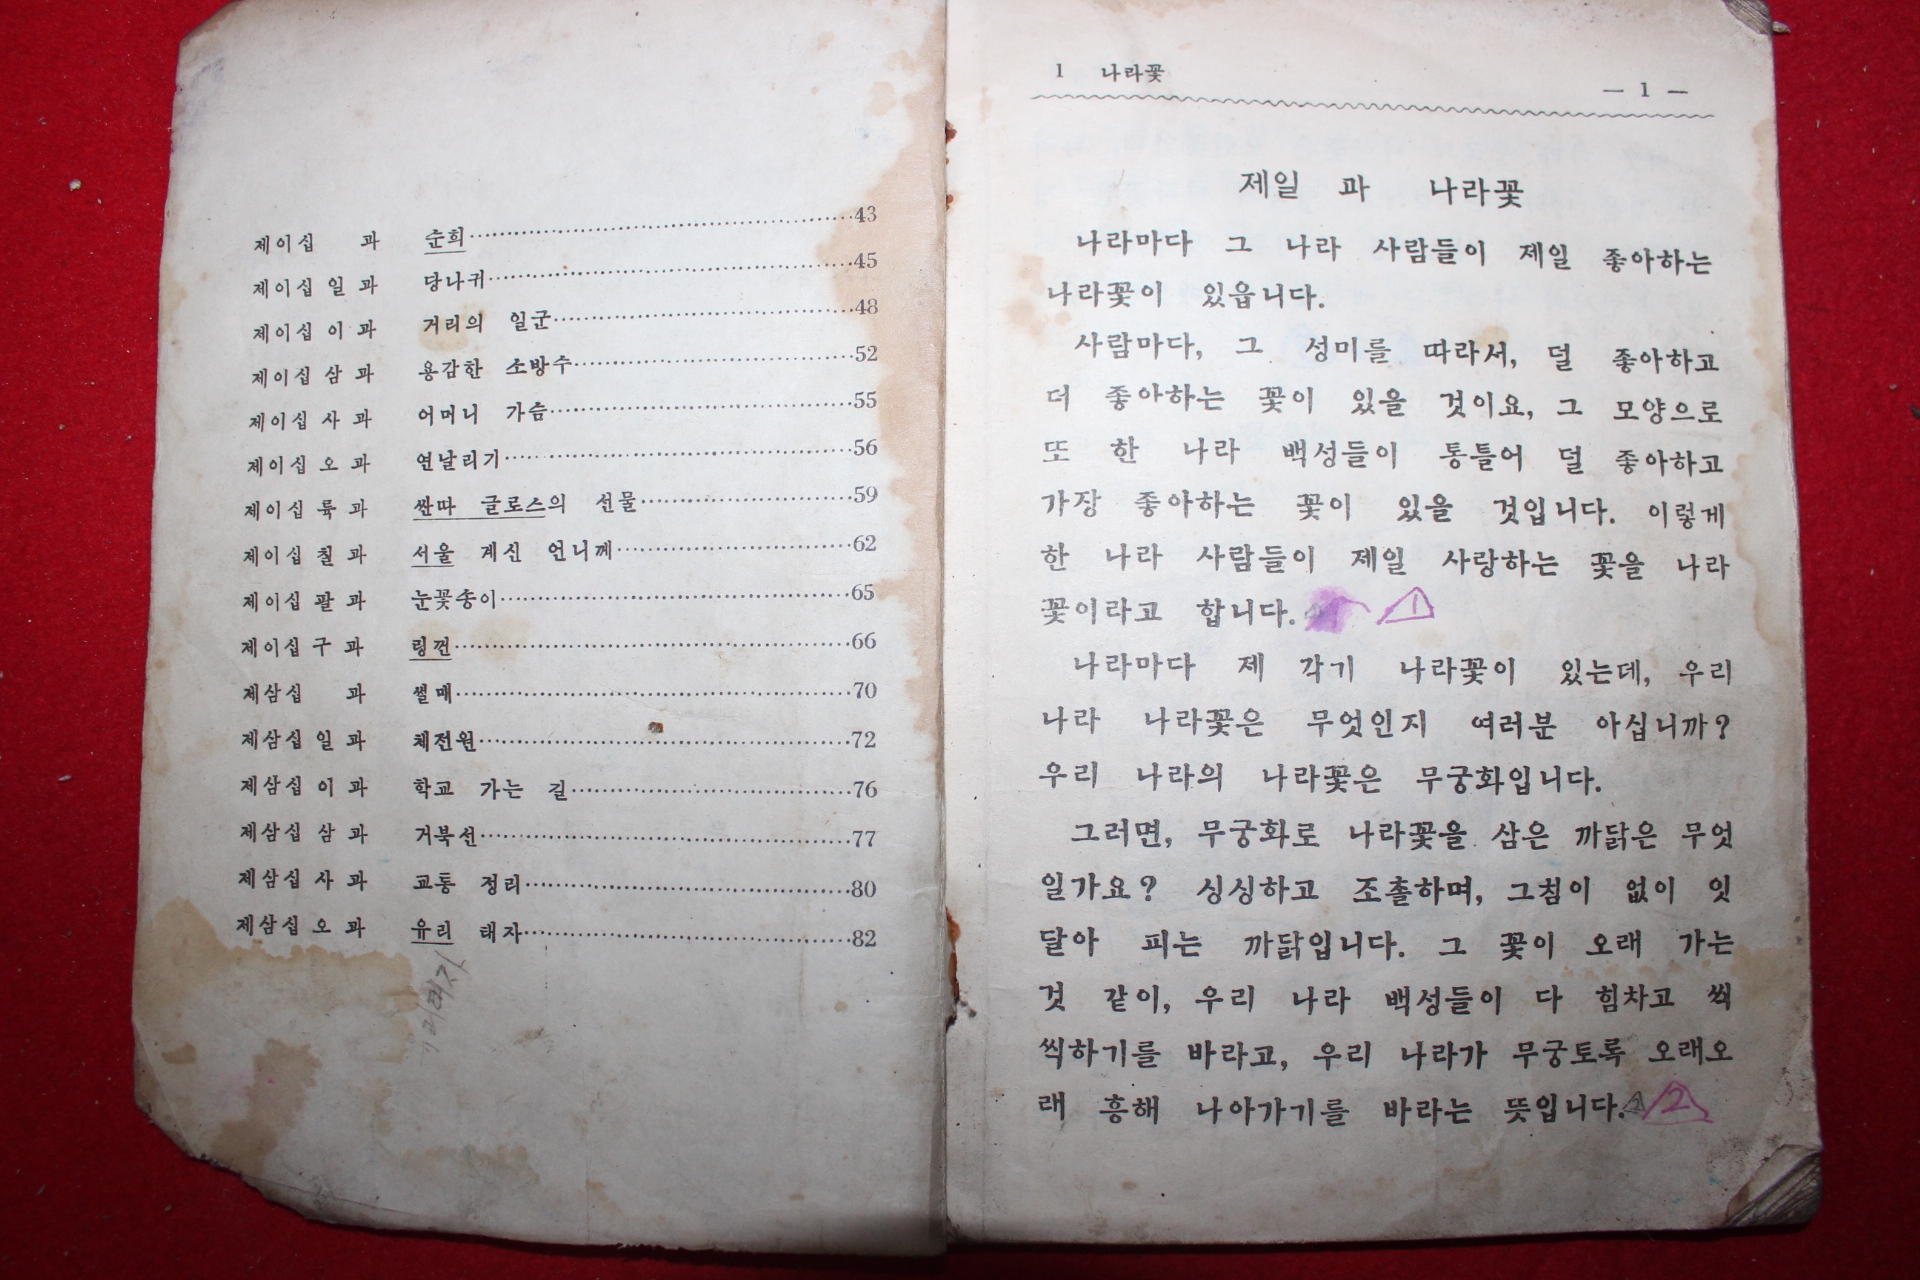 제이십 과 순희 43
제이십일과 당나귀 45
제이십이과 거리의 일군 48
제이십삼과 용감한 소방수 52
제이십사과 어머니 가슴 55
제이십오과 연날리기 56
제이십륙과 싼따 클로스의 선물 59
제이십칠과 서울 계신 언니께 62
제이십팔과 눈꽃송이 65
제이십구과 링컨 66
제삼십 과 썰매 70
제삼십일과 체전원 72
제삼십이과 학교 가는 길 76
제삼십삼과 거북선 77
제삼십사과 교통 정리 80
제삼십오과 유리 태자 82
1 나라꽃
— 1 —
제일 과 나라꽃
나라마다 그 나라 사람들이 제일 좋아하는
나라꽃이 있읍니다.
사람마다, 그 성미를 따라서, 덜 좋아하고
더 좋아하는 꽃이 있을 것이요, 그 모양으로
또 한 나라 백성들이 통틀어 덜 좋아하고
가장 좋아하는 꽃이 있을 것입니다. 이렇게
한 나라 사람들이 제일 사랑하는 꽃을 나라
꽃이라고 합니다. 1
나라마다 제 각기 나라꽃이 있는데, 우리
나라 나라꽃은 무엇인지 여러분 아십니까?
우리 나라의 나라꽃은 무궁화입니다.
그러면, 무궁화로 나라꽃을 삼은 까닭은 무엇
일가요? 싱싱하고 조촐하며, 그침이 없이 잇
달아 피는 까닭입니다. 그 꽃이 오래 가는
것 같이, 우리 나라 백성들이 다 힘차고 씩
씩하기를 바라고, 우리 나라가 무궁토록 오래오
래 흥해 나아가기를 바라는 뜻입니다. 2